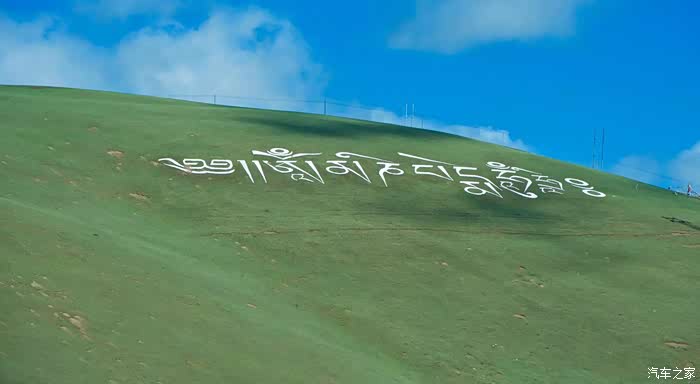 ༄༅།།ཨོཾ་མ་ཎི་པདྨེ་ཧཱུྃ་ཧྲཱིཿ
汽车之家